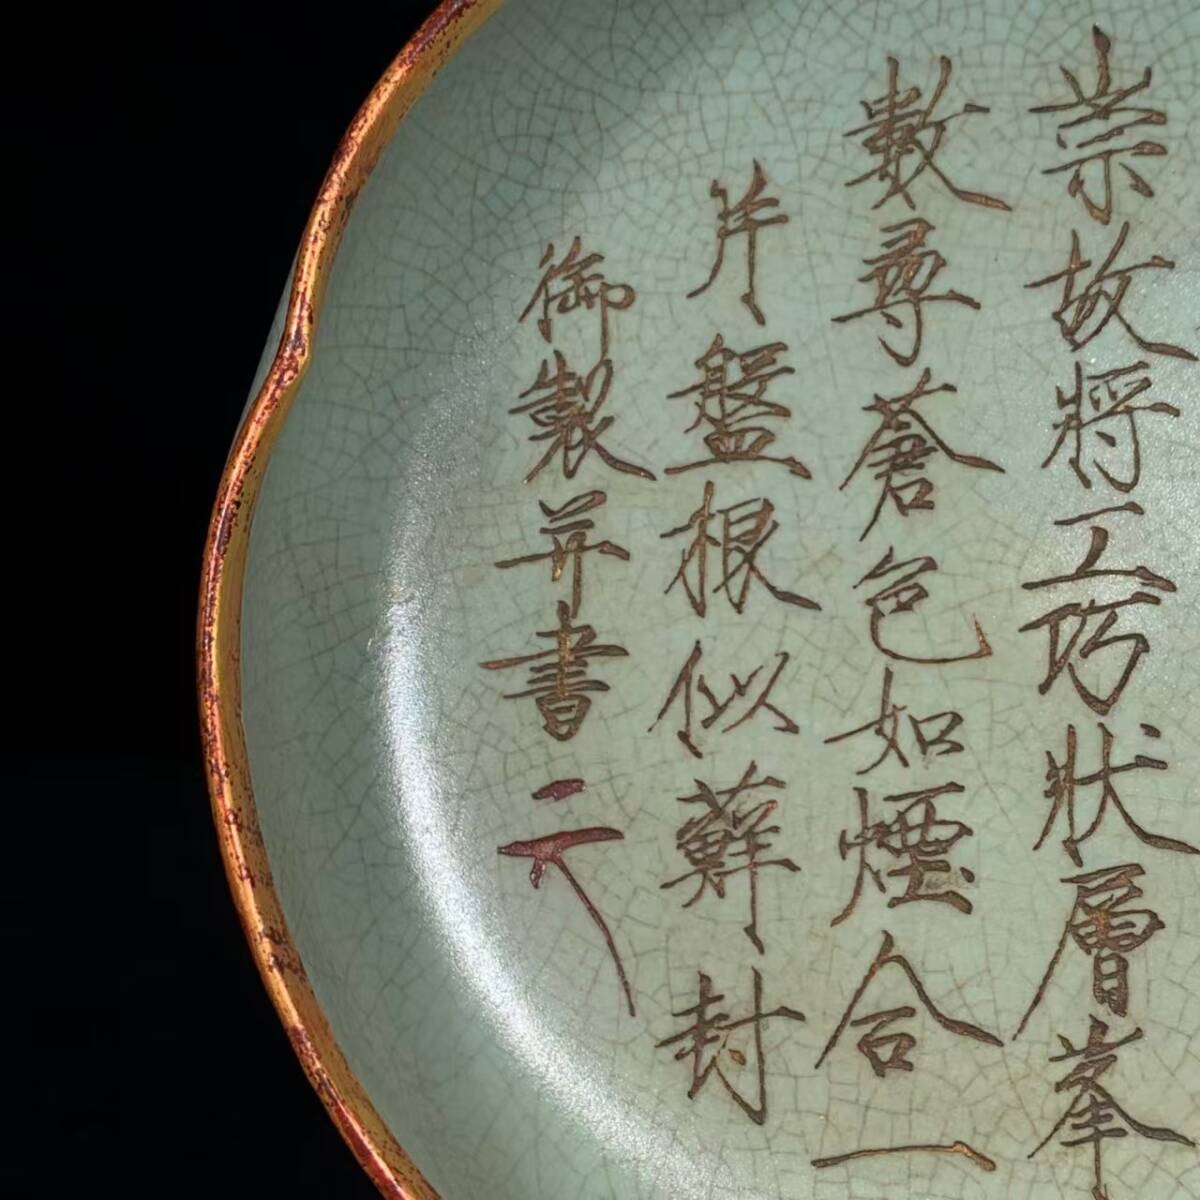 崇故將工巧狀層峯
數尋蒼色如煙合一
片盤根似蘚封
御製并書